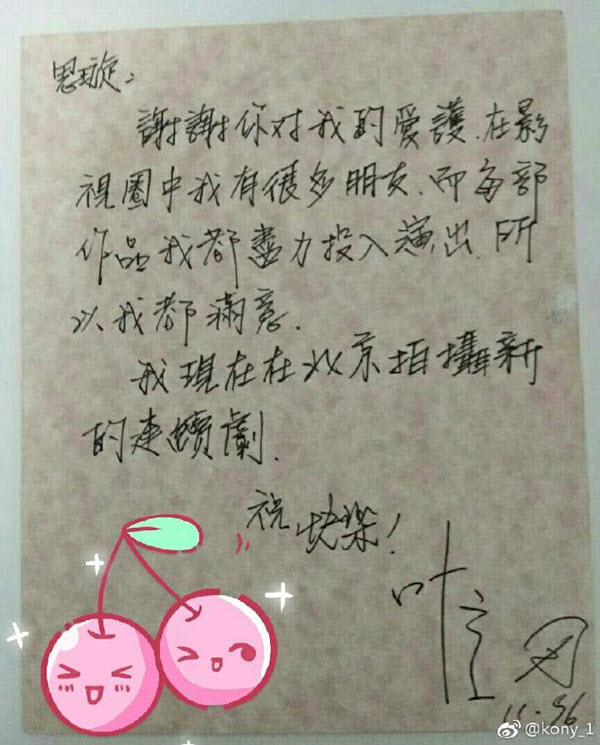 思璇：
謝謝你对我的愛護.在影
視圈中我有很多朋友.而每部
作品我都盡力投入演出.所
以我都滿意.
我現在在北京拍攝新
的連續劇.
祝
快樂!
11.96
@kony_1